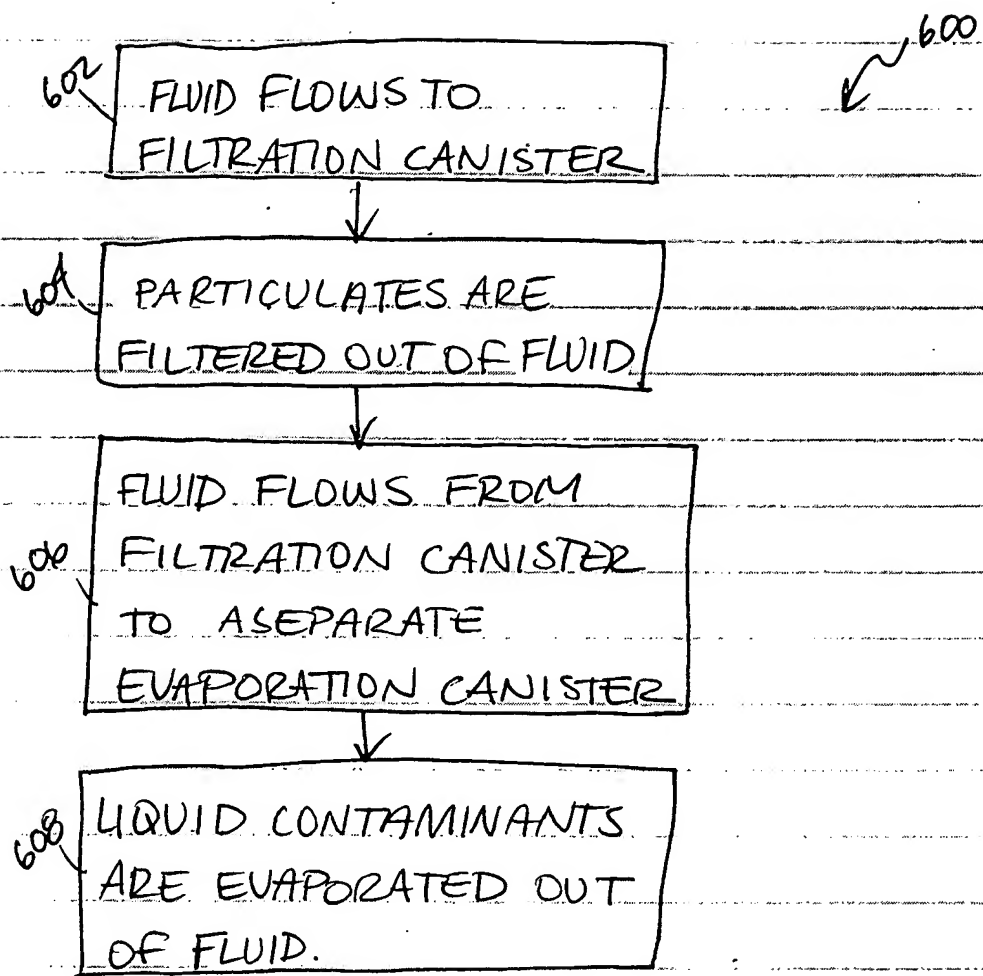 600
602
FLUID FLOWS TO
FILTRATION CANISTER
604
PARTICULATES ARE
FILTERED OUT OF FLUID
606
FLUID FLOWS FROM
FILTRATION CANISTER
TO ASEPARATE
EVAPORATION CANISTER
608
LIQUID CONTAMINANTS
ARE EVAPORATED OUT
OF FLUID.